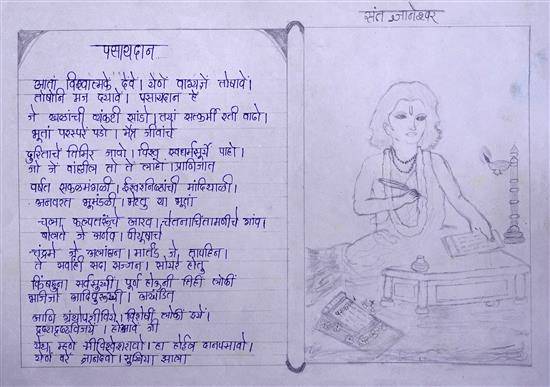 संत ज्ञानेश्वर
पसायदान
आतां विश्वात्मकें देवें। येणें वाग्यज्ञें तोषावें।
तोषोनि मज द्यावे। पसायदान हें
जे खळांची व्यंकटी सांडो। तयां सत्कर्मी रती वाढो।
भूतां परस्परे पडो। मैत्र जीवांचे
दुरितांचे तिमिर जावो। विश्व स्वधर्मसूर्ये पाहो।
जो जे वांछील तो ते लाहो। प्राणिजात
वर्षत सकळमंगळी। ईश्वरनिष्ठांची मांदियाळी।
अनवरत भूमंडळी। भेटतु या भूतां
चला कल्पतरूंचे आरव। चेतनाचिंतामणीचे गांव।
बोलते जे अर्णव। पीयूषांचे
चंद्रमे जे अलांछन। मार्तंड जे तापहिन।
ते सर्वांही सदा सज्जन। सोयरे होतु
किंबहुना सर्वसुखीं। पूर्ण होऊनी तिहीं लोकीं
भजिजो आदिपुरूखीं। अखंडित
आणि ग्रंथोपजीविये। विशेषीं लोकीं इयें।
दृष्टादृष्टविजये। होआवे जी
येथ म्हणे श्रीविश्वेशरावो। हा होईल दानपसावो।
येणें वरें ज्ञानदेवो। सुखिया झाला